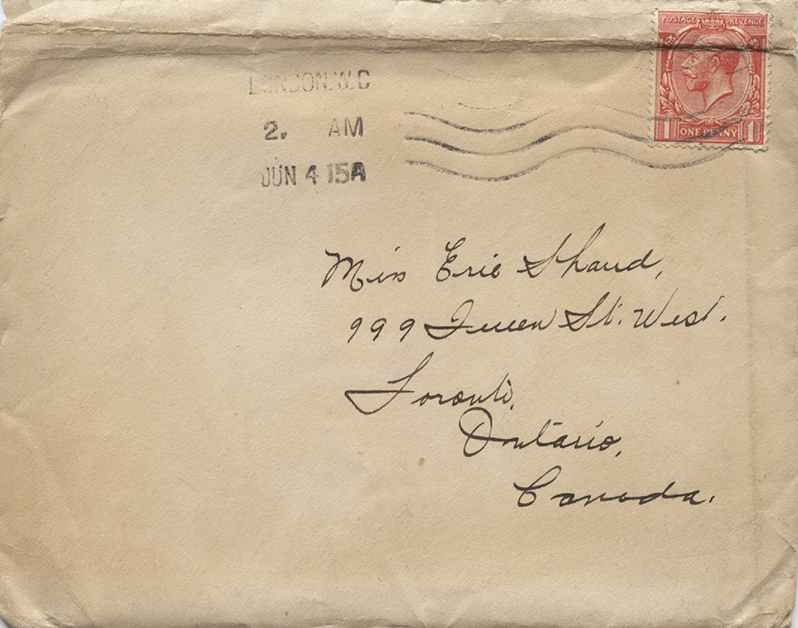 POSTAGE REVENUE
LONDON. W.C
2. AM
JUN 4 15A
1 ONE PENNY 1
Miss Erie Shaud,
999 Queen St. West.
Toronto,
Ontario,
Canada.